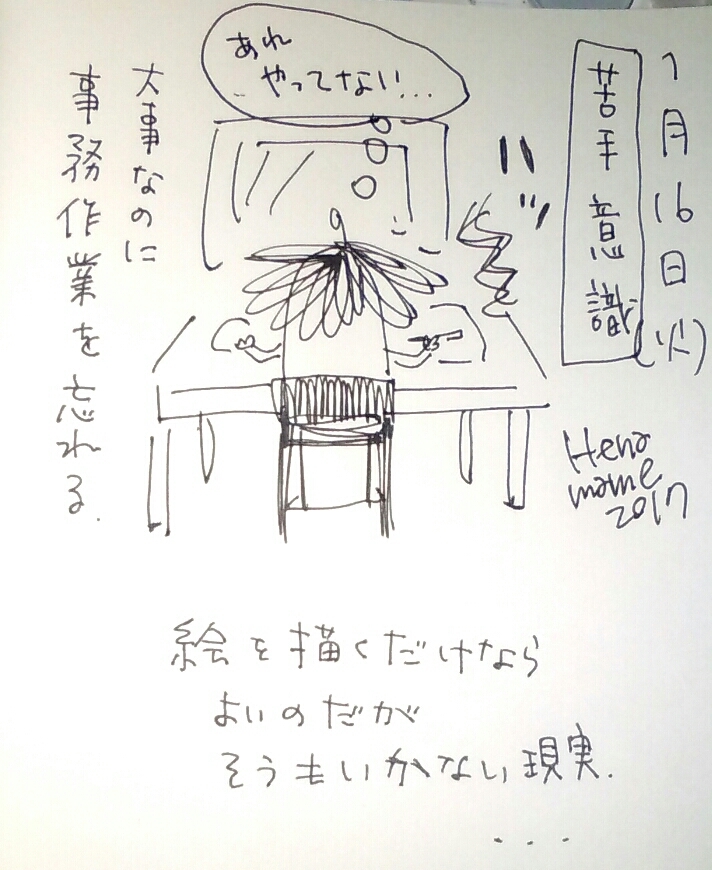 1月16日(火)
苦手意識
あれ
やってない...
ハッ
大事なのに
事務作業を忘れる.
Hena
mame
2017
絵を描くだけなら
よいのだが
そうもいかない現実.
...